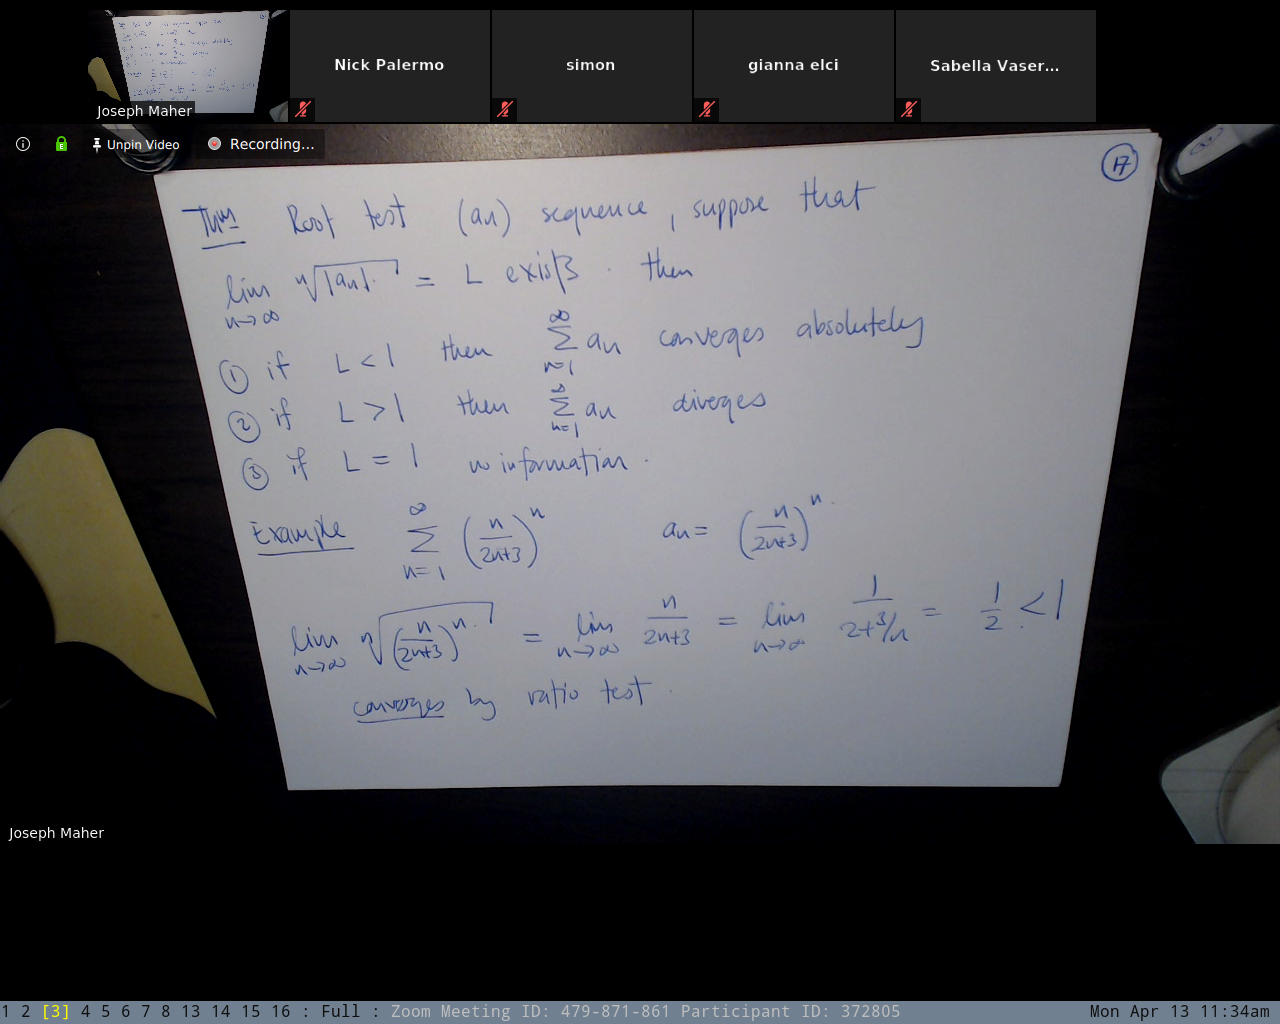 Joseph Maher
Nick Palermo
simon
gianna elci
Sabella Vaser...
Unpin Video
Recording...
17
Thm Root test (an) sequence, suppose that
lim n→∞ ⁿ√|an| = L exists. then
① if L < 1 then ∞ Σ n=1 an converges absolutely
② if L > 1 then ∞ Σ n=1 an diverges
③ if L = 1 no information.
Example ∞ Σ n=1 (n/2n+3)ⁿ an = (n/2n+3)ⁿ.
lim n→∞ ⁿ√(n/2n+3)ⁿ = lim n→∞ n/2n+3 = lim n→∞ 1/2+3/n = 1/2 < 1
converges by ratio test.
Joseph Maher
1 2 [3] 4 5 6 7 8 13 14 15 16 : Full : Zoom Meeting ID: 479-871-861 Participant ID: 372805 Mon Apr 13 11:34am